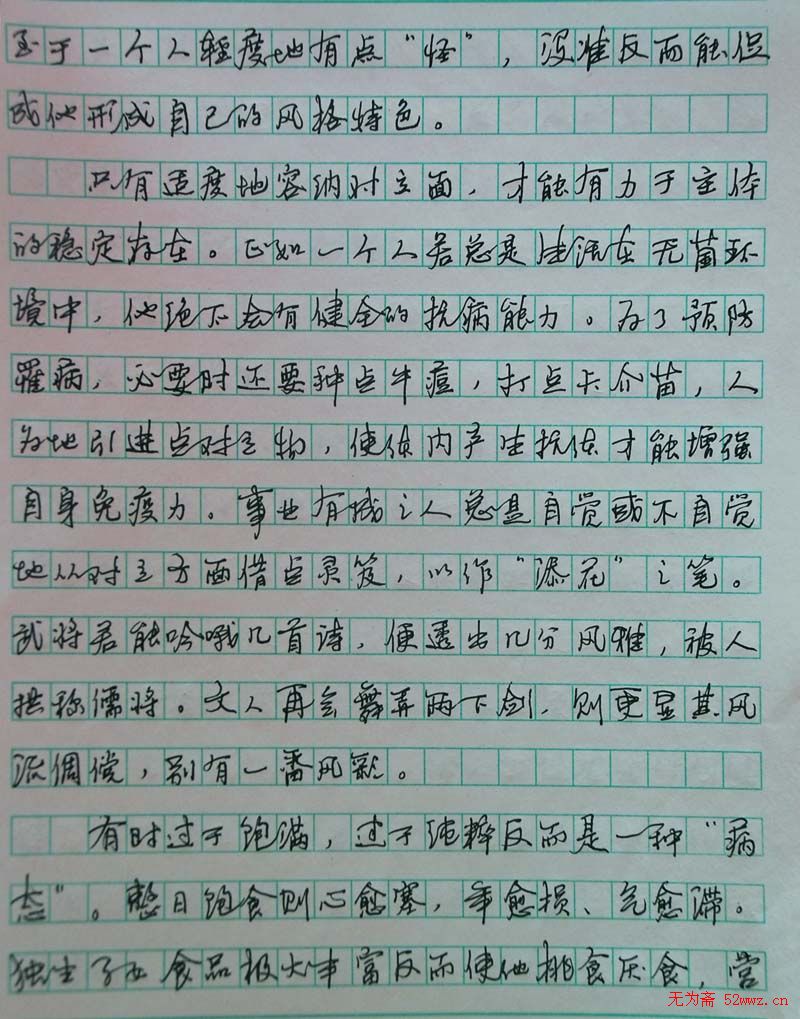 至于一个人轻度地有点“怪”，没准反而能促
成他形成自己的风格特色。
只有适度地容纳对立面，才能有力于主体
的稳定存在。正如一个人若总是生活在无菌环
境中，他绝不会有健全的抗病能力。为了预防
罹病，必要时还要种点牛痘，打点卡介苗，人
为地引进点对立物，使体内产生抗体才能增强
自身免疫力。事业有成之人总是自觉或不自觉
地从对立方面借点灵笈，以作“添花”之笔。
武将若能吟哦几首诗，便透出几分风雅，被人
拱称儒将。文人再会舞弄两下剑，则更显其风
流倜傥，别有一番风彩。
有时过于饱满，过于纯粹反而是一种“病
态”。整日饱食则心愈塞，愈损、气愈滞。
独生子女食品极大丰富反而使他挑食厌食，营
无为斋 52wwz.cn